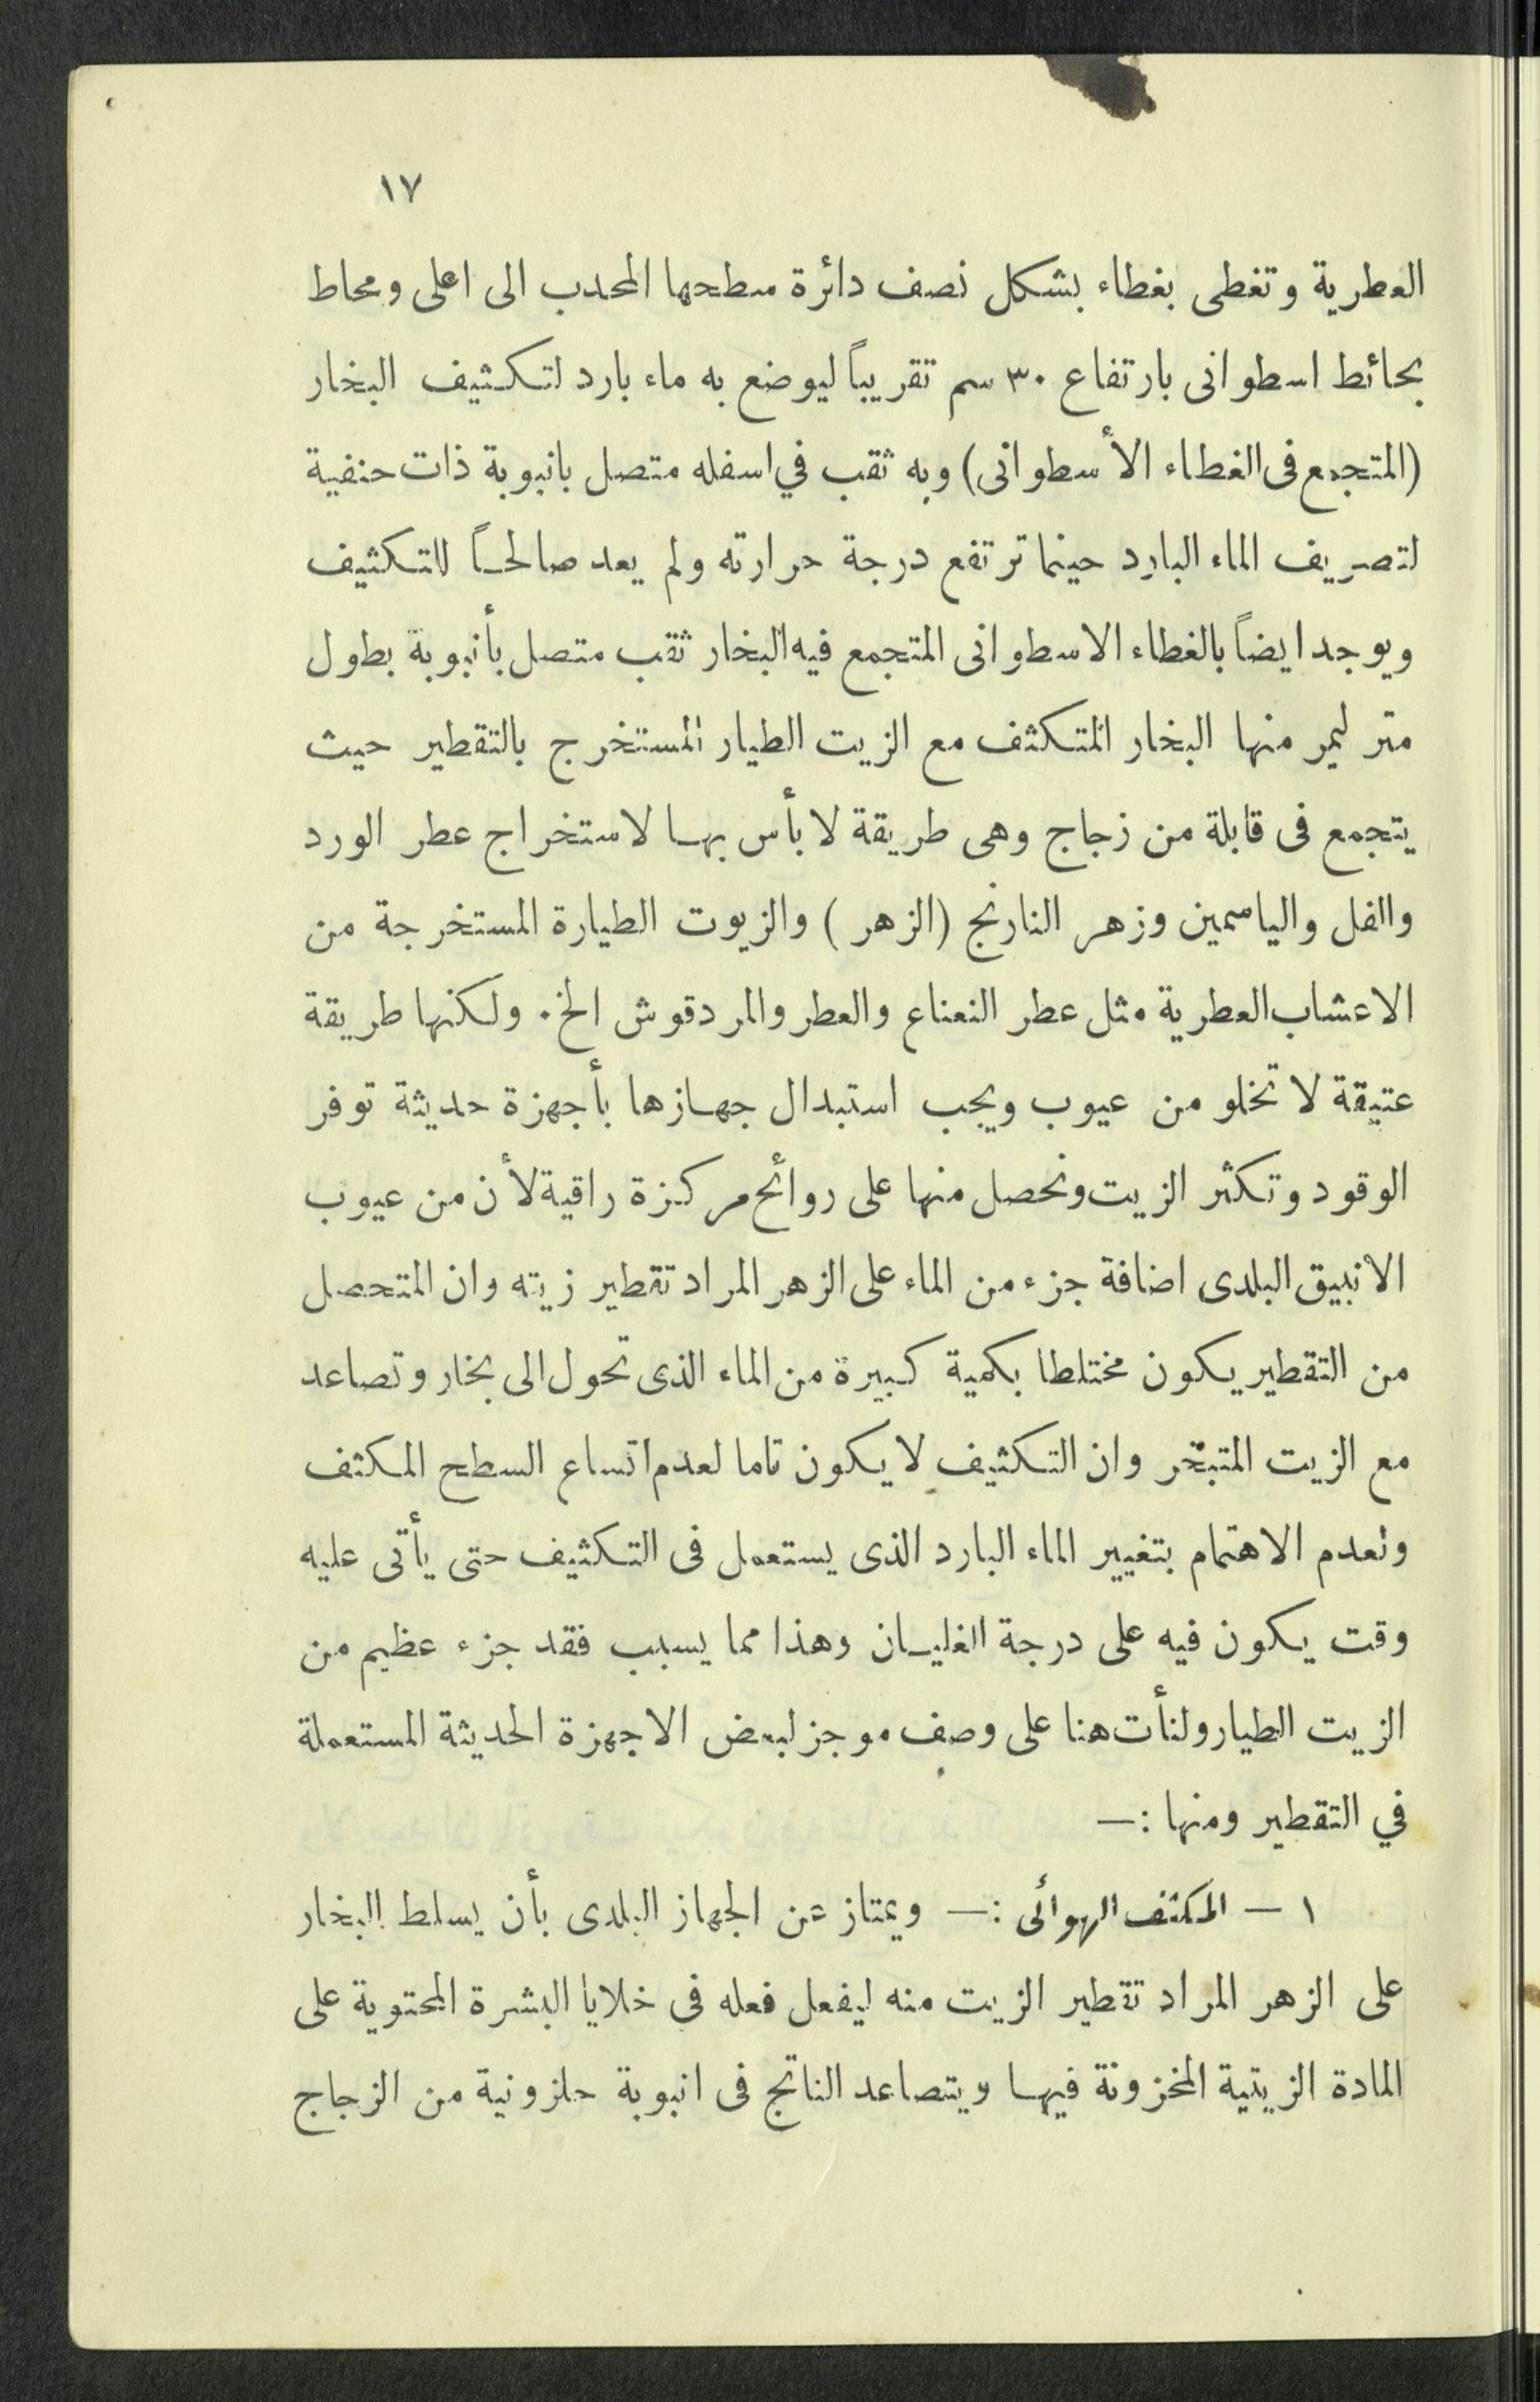 ١٧
العطرية وتغطى بغطاء بشكل نصف دائرة سطحها المحدب الى اعلى ومحاط
بحائط اسطوانى بارتفاع ٣٠ سم تقريباً ليوضع به ماء بارد لتكثيف البخار
(المتجمع فى الغطاء الأسطوانى) وبه ثقب في اسفله متصل بانبوبة ذات حنفية
لتصريف الماء البارد حينما ترتفع درجة حرارته ولم يعد صالحاً للتكثيف
ويوجد ايضاً بالغطاء الاسطوانى المتجمع فيه البخار ثقب متصل بأنبوبة بطول
متر ليمر منها البخار المتكثف مع الزيت الطيار المستخرج بالتقطير حيث
يتجمع فى قابلة من زجاج وهى طريقة لا بأس بها لاستخراج عطر الورد
والفل والياسمين وزهر النارنج (الزهر) والزيوت الطيارة المستخرجة من
الاعشاب العطرية مثل عطر النعناع والعطر والمردقوش الخ. ولكنها طريقة
عتيقة لا تخلو من عيوب ويجب استبدال جهازها بأجهزة حديثة توفر
الوقود وتكثر الزيت ونحصل منها على روائح مركزة راقية لأن من عيوب
الانبيق البلدى اضافة جزء من الماء على الزهر المراد تقطير زيته وان المتحصل
من التقطير يكون مختلطا بكمية كبيرة من الماء الذى تحول الى بخار وتصاعد
مع الزيت المتبخر وان التكثيف لا يكون تاما لعدم اتساع السطح المكثف
ولعدم الاهتمام بتغيير الماء البارد الذى يستعمل فى التكثيف حتى يأتى عليه
وقت يكون فيه على درجة الغليان وهذا مما يسبب فقد جزء عظيم من
الزيت الطيار ولنأت هنا على وصف موجز لبعض الاجهزة الحديثة المستعملة
في التقطير ومنها :—
١ — المكثف الهوائى :— ويمتاز عن الجهاز البلدى بأن يسلط البخار
على الزهر المراد تقطير الزيت منه ليفعل فعله فى خلايا البشرة المحتوية على
المادة الزيتية المخزونة فيها ويتصاعد الناتج فى انبوبة حلزونية من الزجاج